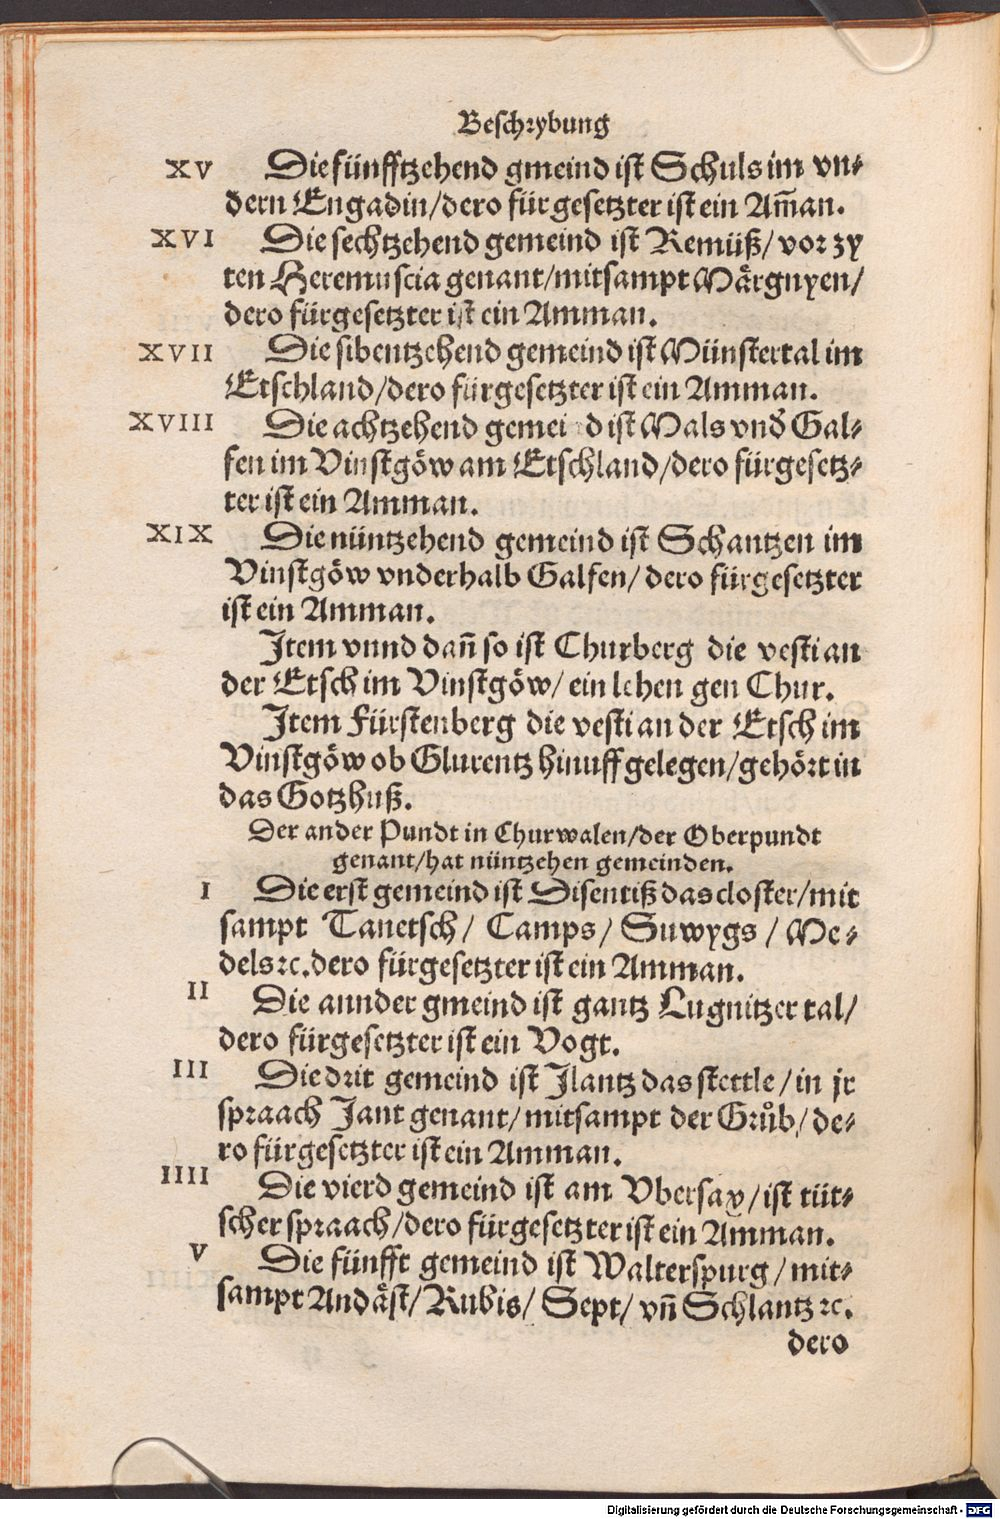 Beschrybung
XV Die fünfftzehend gmeind ist Schuls im vn⸗
dern Engadin/dero fürgesetzter ist ein Am̃an.
XVI Die sechtzehend gemeind ist Remüß/ vor zy
ten Heremuscia genant/mitsampt Mårgnyen/
dero fürgesetzter ist ein Amman.
XVII Die sibentzehend gemeind ist Münstertal im
Etschland/dero fürgesetzter ist ein Amman.
XVIII Die achtzehend gemei d ist Mals vnd̕ Gal⸗
fen im Vinstgöw am Etschland/dero fürgesetz⸗
ter ist ein Amman.
XIX Die nüntzehend gemeind ist Schantzen im
Vinstgöw vnderhalb Galfen/ dero fürgesetzter
ist ein Amman.
Item vnnd dañ so ist Churberg die vesti an
der Etsch im Vinstgöw/ ein lehen gen Chur.
Item Fürstenberg die vesti an der Etsch im
Vinstgöw ob Glurentz hinuff gelegen/gehört in
das Gotzhuß.
Der ander Pundt in Churwalen/der Oberpundt
genant/hat nüntzehen gemeinden.
I Die erst gemeind ist Disentiß das closter/mit
sampt Tanetsch/ Camps/ Suwygs / Me⸗
dels ꝛc. dero fürgesetzter ist ein Amman.
II Die annder gmeind ist gantz Lugnitzer tal/
dero fürgesetzter ist ein Vogt.
III Die drit gemeind ist Jlantz das stettle/in jr
spraach Jant genant/mitsampt der Grůb/ de⸗
ro fürgesetzter ist ein Amman.
IIII Die vierd gemeind ist am Vbersax/ist tüt⸗
scher spraach/dero fürgesetzter ist ein Amman.
V Die fünfft gemeind ist Walterspurg/ mit⸗
sampt Andåst/Rubis/ Sept/ vñ Schlantz ꝛc.
dero
Digitalisierung gefördert durch die Deutsche Forschungsgemeinschaft - DFG